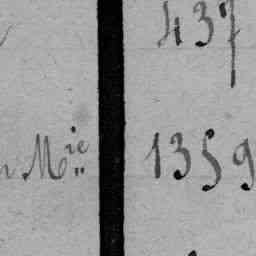 437
Mie 1359